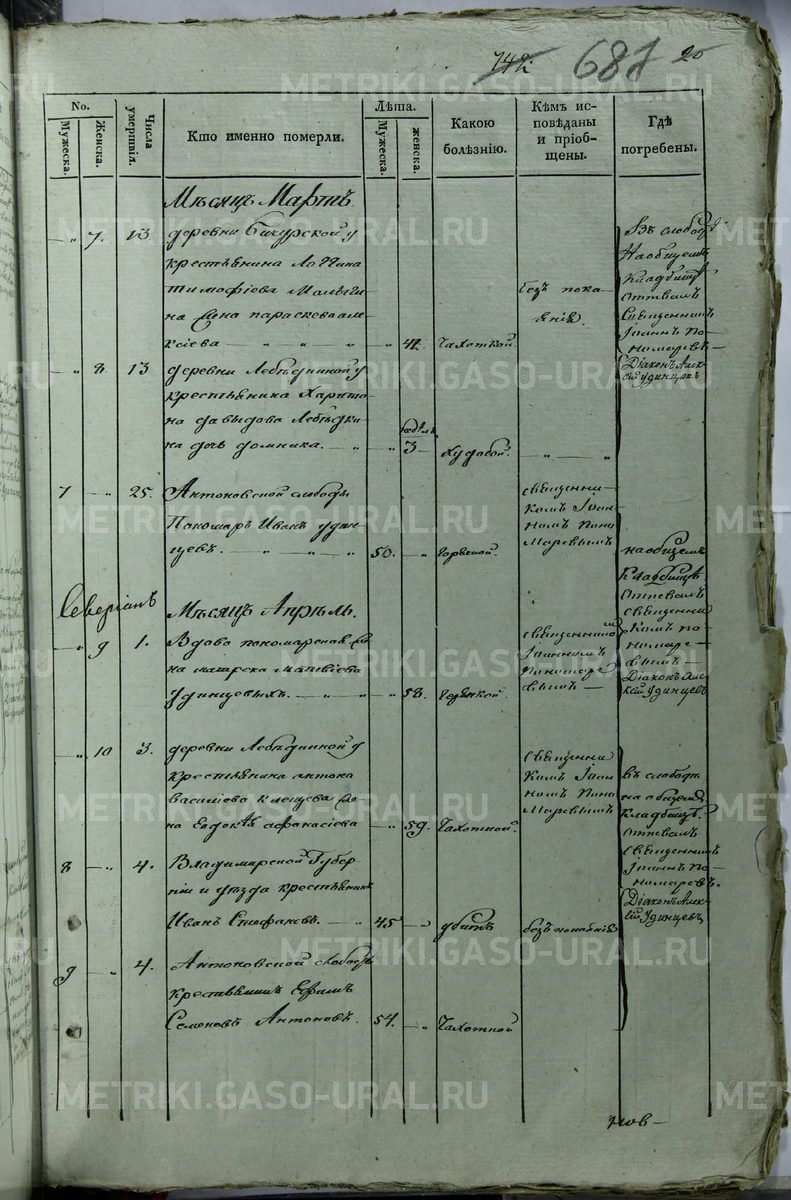 742. 681 20
No.
Мужеска.
Женска.
Числа умертвія.
Кто именно померли.
Лѣта.
Мужеска.
женска.
Какою болѣзнію.
Кѣмъ исповѣданы и пріобщены.
Гдѣ погребены.
Мѣсяцъ Мартъ
„ 7. 13 деревни
крестьянина Логгина
тимофіева
на жена параскева
ксіева „ 42 Чахоткой.
безъ пока-
янія.
Въ слободѣ
На общемъ
Кладбищѣ
отпевалъ
Священникъ
Іоаннъ По-
номаревъ
Діаконъ Алек-
сій Удинцовъ
„ 8 13 деревни
крестьянина Харито-
на давыдова
на дочь домника. „ 3 Худобой. „ „
7 „ 25. Антоновской слободы
Пономарь Иванъ Удин-
цевъ. 50. „ Горячкой.
священни-
комъ Іоан-
номъ Поно
маревымъ
на общемъ
Кладбищѣ
отпевалъ
священни
комъ по-
номаре-
вымъ
Діаконъ Але-
ксій Удинцевъ
Северіанъ
Мѣсяцъ Апрѣль.
„ 9 1. Вдова пономарская же-
на матвѣева
Удинцевыхъ. „ 58. Горячкой.
священником
Іоанномъ
Пономаре
вымъ
„ 10 3. деревни
крестьянина антона
василіева же-
на Евдокія афанасіева „ 59. Чахоткой.
священни
комъ Іоан
номъ Поно
маревымъ
въ слободѣ
на общемъ
Кладбищѣ.
отпевалъ
священникъ
Іоаннъ По-
номаревъ.
Діаконъ Алек-
сій Удинцевъ
8 „ 4. Владимирской Губер-
ніи и уѣзда крестьянинъ
Иванъ Стефановъ. 45 „ убитъ безъ покаянія
9 „ 4. Антоновской слободы
крестьянинъ Ефимъ
Семеновъ Антоновъ. 54. „ Чахоткой
METRIKI.GASO-URAL.RU